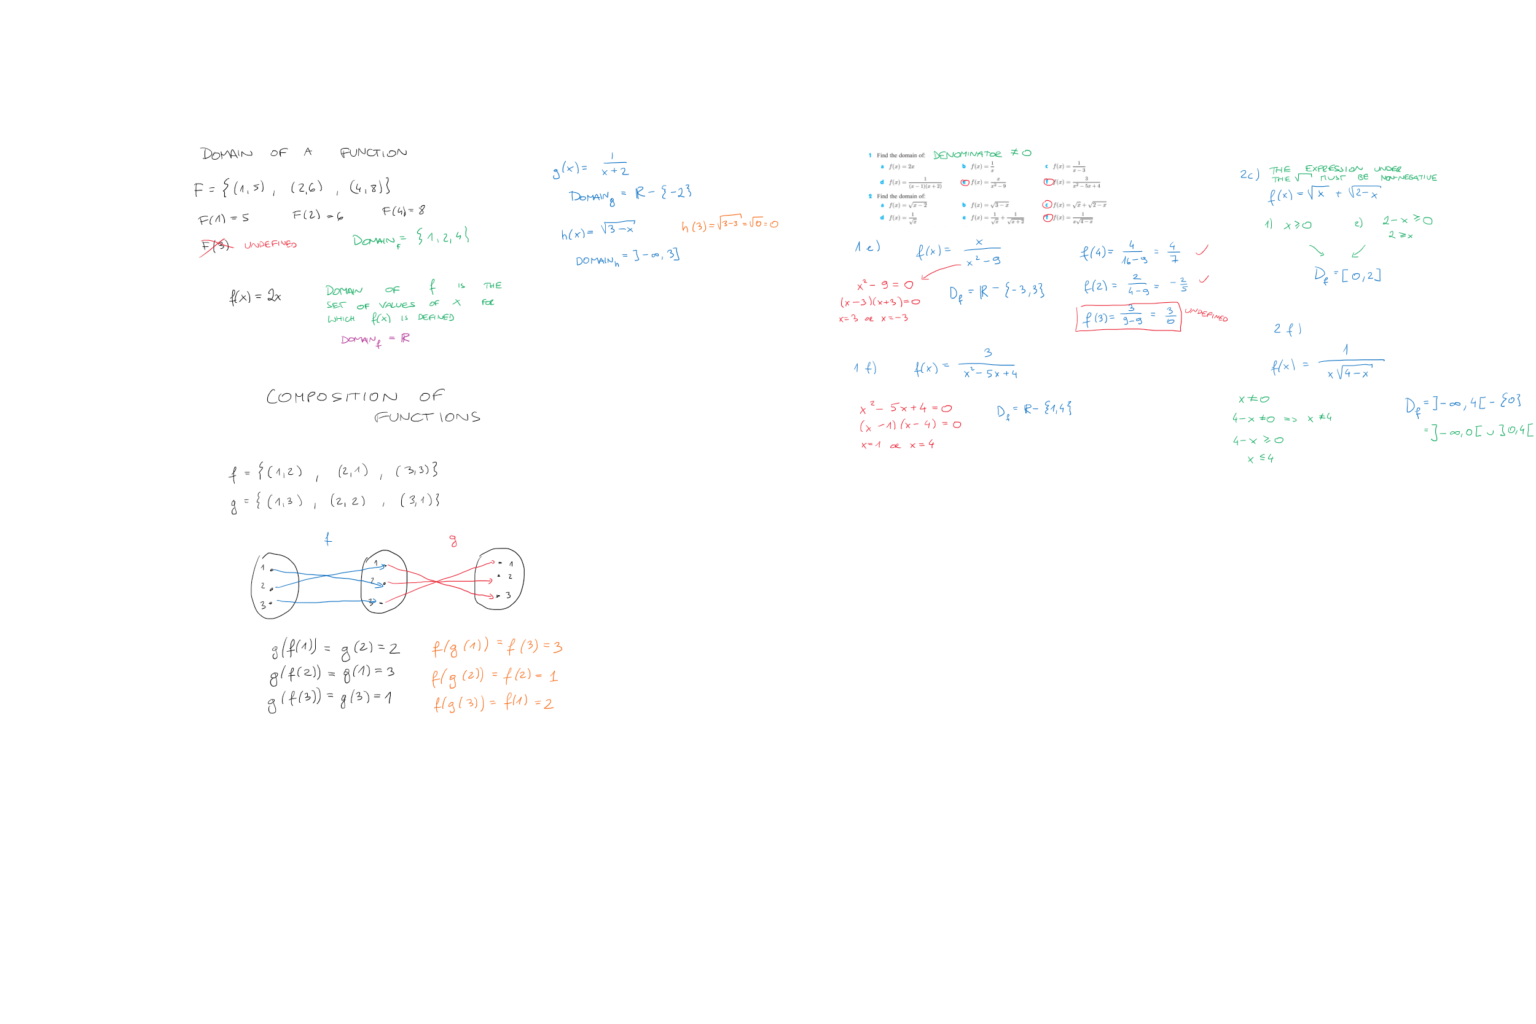 DOMAIN OF A FUNCTION
F = {(1,5), (2,6), (4,8)}
F(1) = 5 F(2) = 6 F(4) = 8
F(3) UNDEFINED DOMAIN_F = {1,2,4}
f(x) = 2x
DOMAIN OF f IS THE
SET OF VALUES OF x FOR
WHICH f(x) IS DEFINED
DOMAIN_f = ℝ
g(x) = 1/(x+2)
DOMAIN_g = ℝ - {-2}
h(x) = √(3-x) h(3) = √(3-3) = √0 = 0
DOMAIN_h = ]-∞, 3]
COMPOSITION OF
FUNCTIONS
f = {(1,2), (2,1), (3,3)}
g = {(1,3), (2,2), (3,1)}
f g
1 1 1
2 2 2
3 3 3
g(f(1)) = g(2) = 2
g(f(2)) = g(1) = 3
g(f(3)) = g(3) = 1
f(g(1)) = f(3) = 3
f(g(2)) = f(2) = 1
f(g(3)) = f(1) = 2
1 Find the domain of: DENOMINATOR ≠ 0
a f(x) = 2x b f(x) = 1/x c f(x) = 1/(x-3)
d f(x) = 1/((x-1)(x+2)) e f(x) = x/(x²-9) f f(x) = 3/(x²-5x+4)
2 Find the domain of:
a f(x) = √(x-2) b f(x) = √(3-x) c f(x) = √x + √(2-x)
d f(x) = 1/√x e f(x) = 1/√x + 1/√(x+2) f f(x) = 1/(x√(4-x))
1 e) f(x) = x/(x²-9)
x² - 9 = 0
(x-3)(x+3) = 0
x = 3 or x = -3
D_f = ℝ - {-3,3}
f(4) = 4/(16-9) = 4/7 ✓
f(2) = 2/(4-9) = -2/5 ✓
f(3) = 3/(9-9) = 3/0 UNDEFINED
1 f) f(x) = 3/(x²-5x+4)
x² - 5x + 4 = 0
(x-1)(x-4) = 0
x = 1 or x = 4
D_f = ℝ - {1,4}
2c) THE EXPRESSION UNDER
THE √ MUST BE NON-NEGATIVE
f(x) = √x + √(2-x)
1) x ≥ 0 2) 2-x ≥ 0
2 ≥ x
D_f = [0,2]
2 f)
f(x) = 1/(x√(4-x))
x ≠ 0
4-x ≠ 0 => x ≠ 4
4-x ≥ 0
x ≤ 4
D_f = ]-∞, 4[ - {0}
= ]-∞, 0[ ∪ ]0, 4[